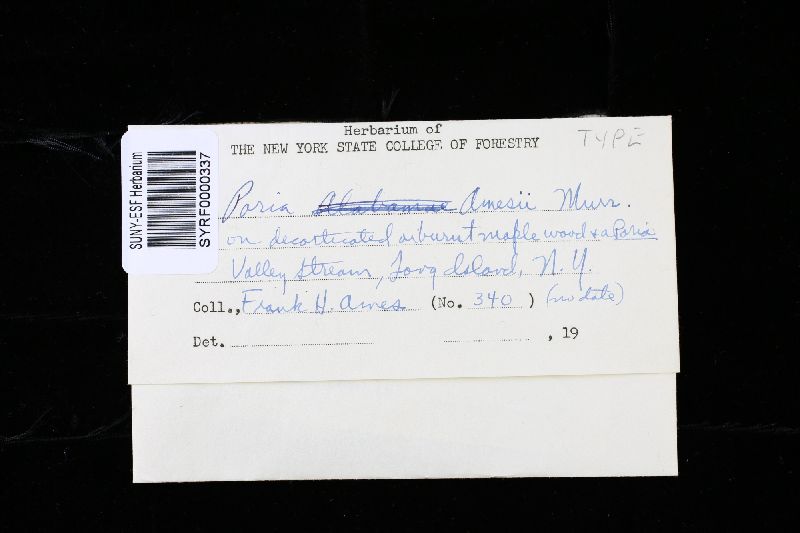 Herbarium of
THE NEW YORK STATE COLLEGE OF FORESTRY
TYPE
SUNY-ESF Herbarium
SYRF0000337
Poria Alabamae Amesii Murr.
on decorticated or burnt maple wood & a Poria
Valley Stream, Long Island, N.Y.
Coll., Frank H. Ames (No. 340 ) (no date)
Det. , 19